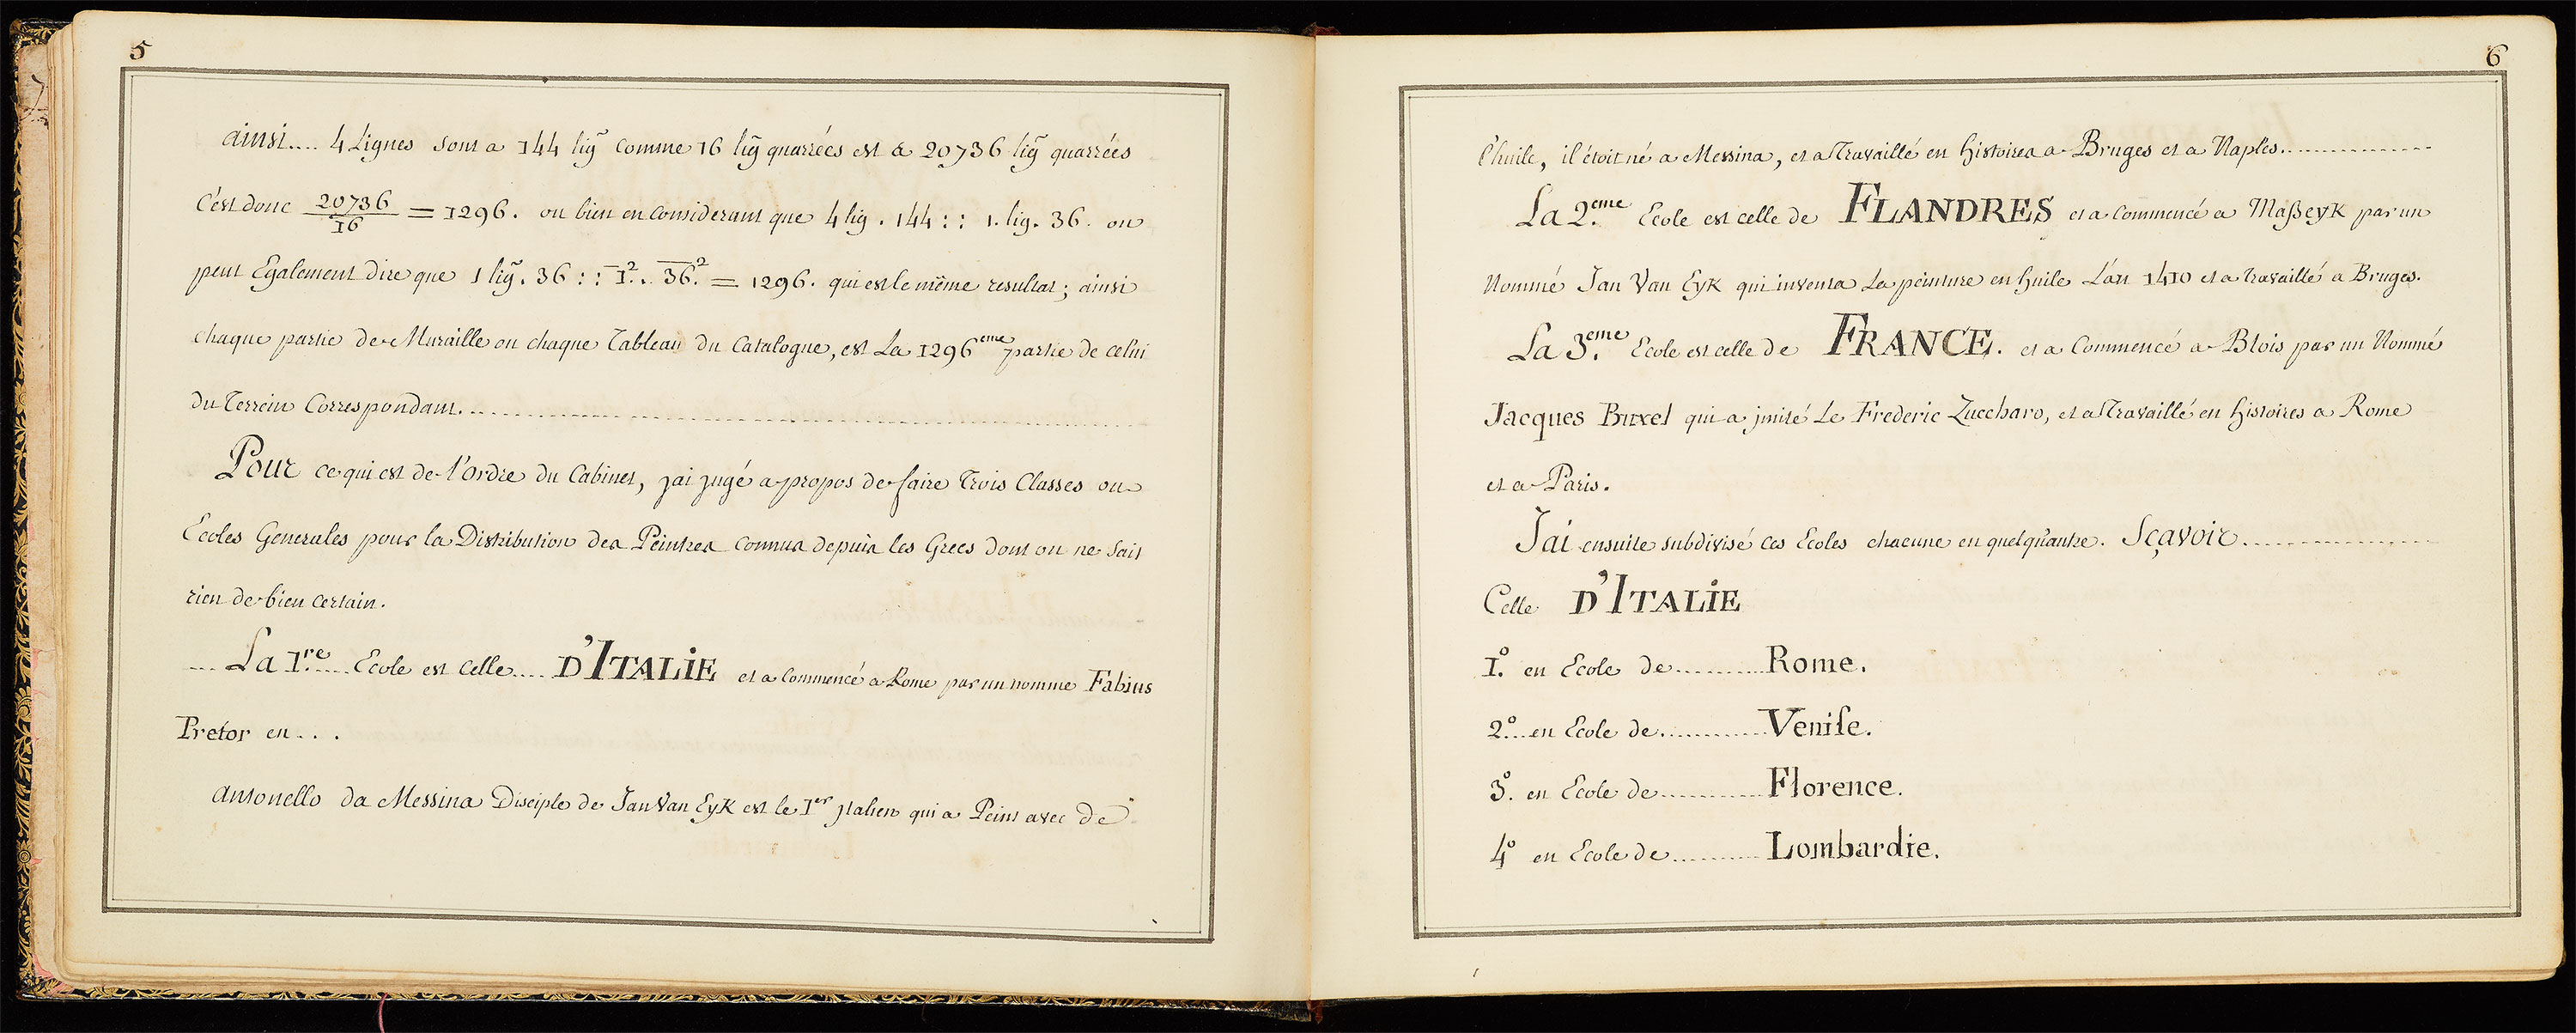 5
ainsi.... 4 Lignes sont a 144 lig̃ comme 16 lig̃ quarrées est a 20736 lig̃ quarrées
C'est donc 20736/16 = 1296. ou bien en considerant que 4 lig. 144 :: 1. lig. 36. on
peut Egalement dire que 1 lig̃. 36 :: 1². 36.² = 1296. qui est le même resultat; ainsi
chaque partie de Muraille ou chaque Tableau du Catalogue, est La 1296eme partie de celui
du Terrein Correspondant.
Pour ce qui est de l'ordre du Cabinet, jai jugé a propos de faire Trois Classes ou
Ecoles Generales pour la Distribution des Peintres connus depuis les Grecs dont on ne sait
rien de bien certain.
... La 1.re .... Ecole est celle.... D'ITALIE et a commencé a Rome par un nomme Fabius
Pretor en . . .
Antonello da Messina Disciple de Jan Van Eyk est le 1er jtalien qui a Peint avec de
6
l'huile, il étoit né a Messina, et a Travaillé en histoires a Bruges et a Naples.
La 2.eme Ecole est celle de FLANDRES et a commencé a Maßeyk par un
Nommé Jan Van Eyk qui inventa La peinture en huile L'an 1410 et a travaillé a Bruges.
La 3.eme Ecole est celle de FRANCE. et a Commencé a Blois par un Nommé
Jacques Buxel qui a jmité Le Frederic Zuccharo, et a Travaillé en histoires a Rome
et a Paris.
Jai ensuite subdivisé ces Ecoles chacune en quelqu'autre. Sçavoir
Celle D'ITALIE
1.º en Ecole de .......... Rome.
2.º... en Ecole de ............ Venise.
3.º en Ecole de ............ Florence.
4.º en Ecole de .......... Lombardie.